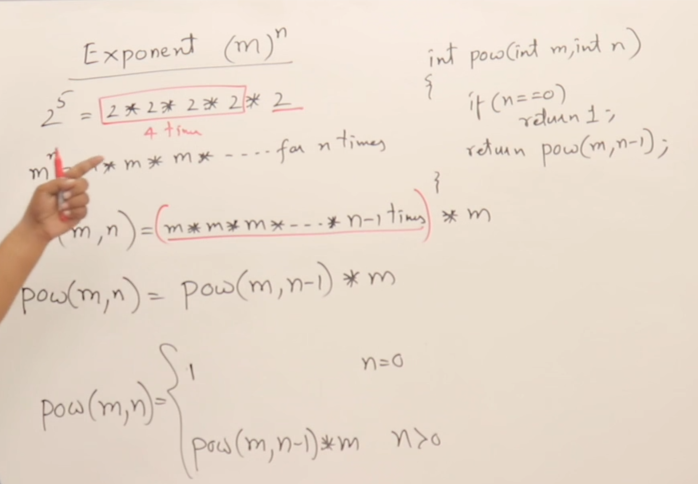 Exponent (m)ⁿ
2⁵ = 2 * 2 * 2 * 2 * 2
4 times
m * m * m * .... for n times
(m,n) = (m*m*m*---* n-1 times) * m
pow(m,n) = pow(m,n-1) * m
pow(m,n)= { 1 n=0
pow(m,n-1)*m n>0
int pow(int m,int n)
{
if(n==0)
return 1;
return pow(m,n-1);
}